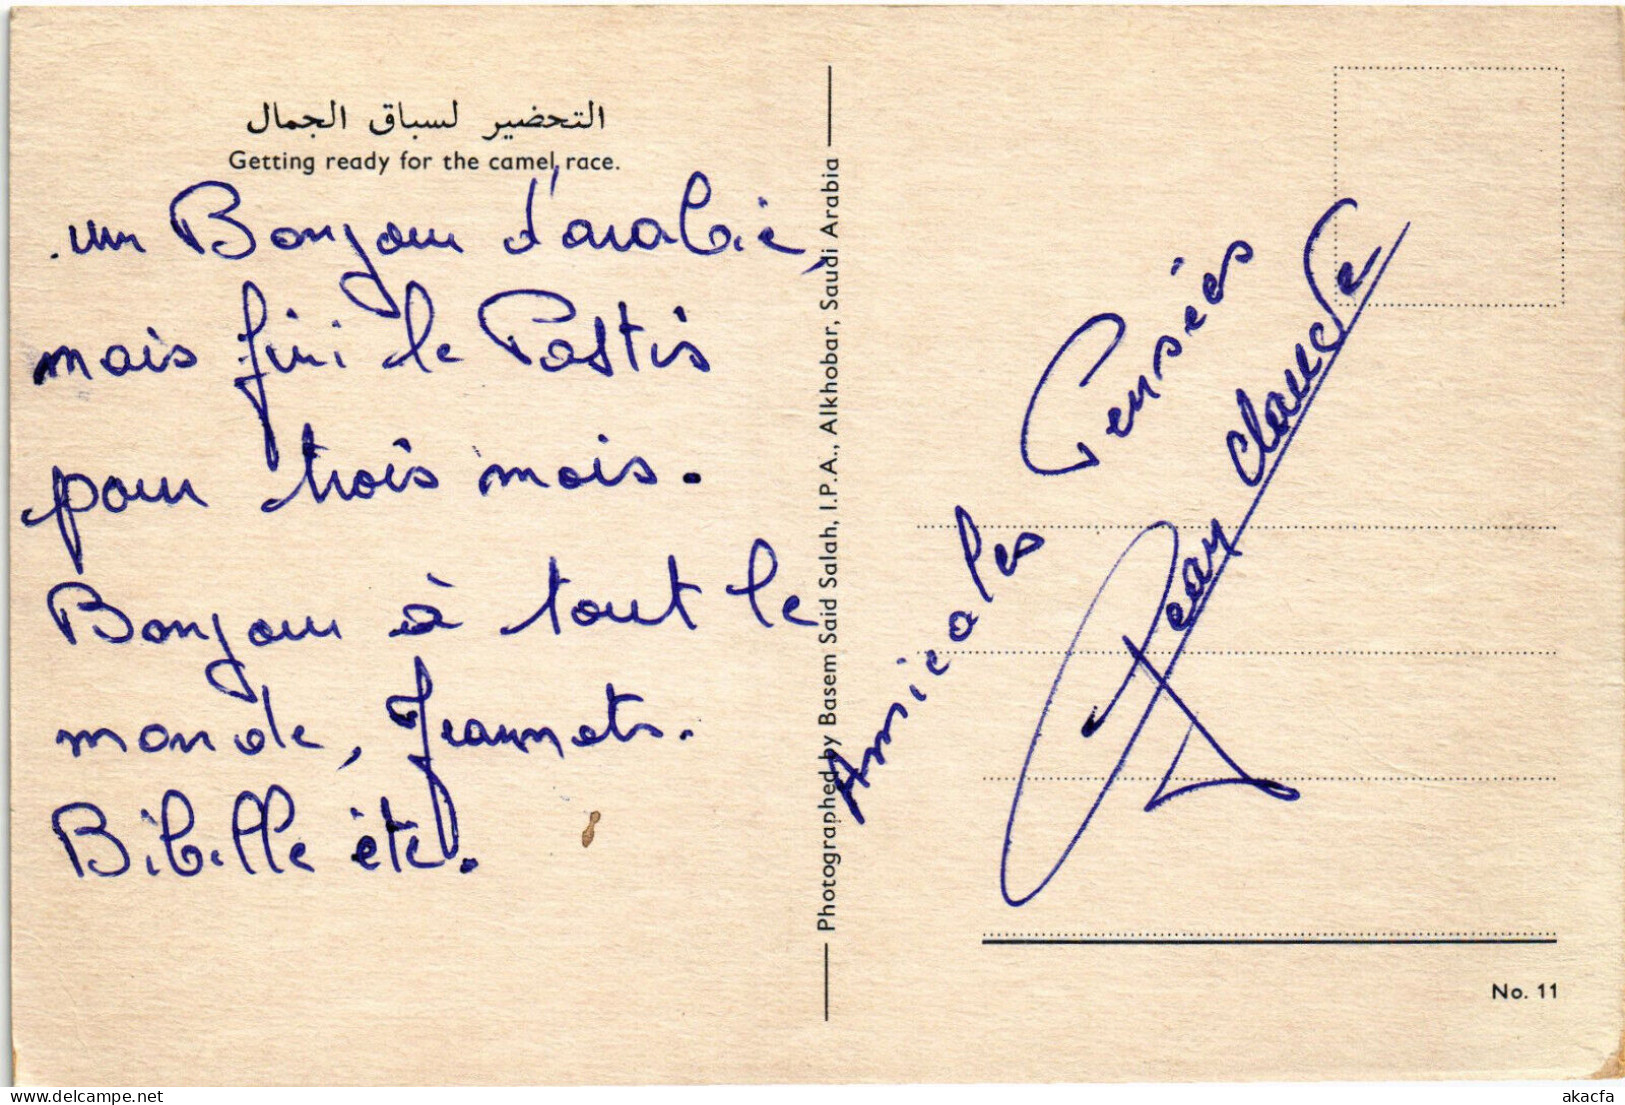 التحضير لسباق الجمال
Getting ready for the camel race.
un Bonjour d'arabie,
mais fini le Pastis
pour trois mois.
Bonjour à tout le
monde, Jeannets.
Bibille etc.
Photographed by Basem Said Salah, I.P.A., Alkhobar, Saudi Arabia
Amicales Pensées
Jean Claude
No. 11
delcampe.net
akacfa